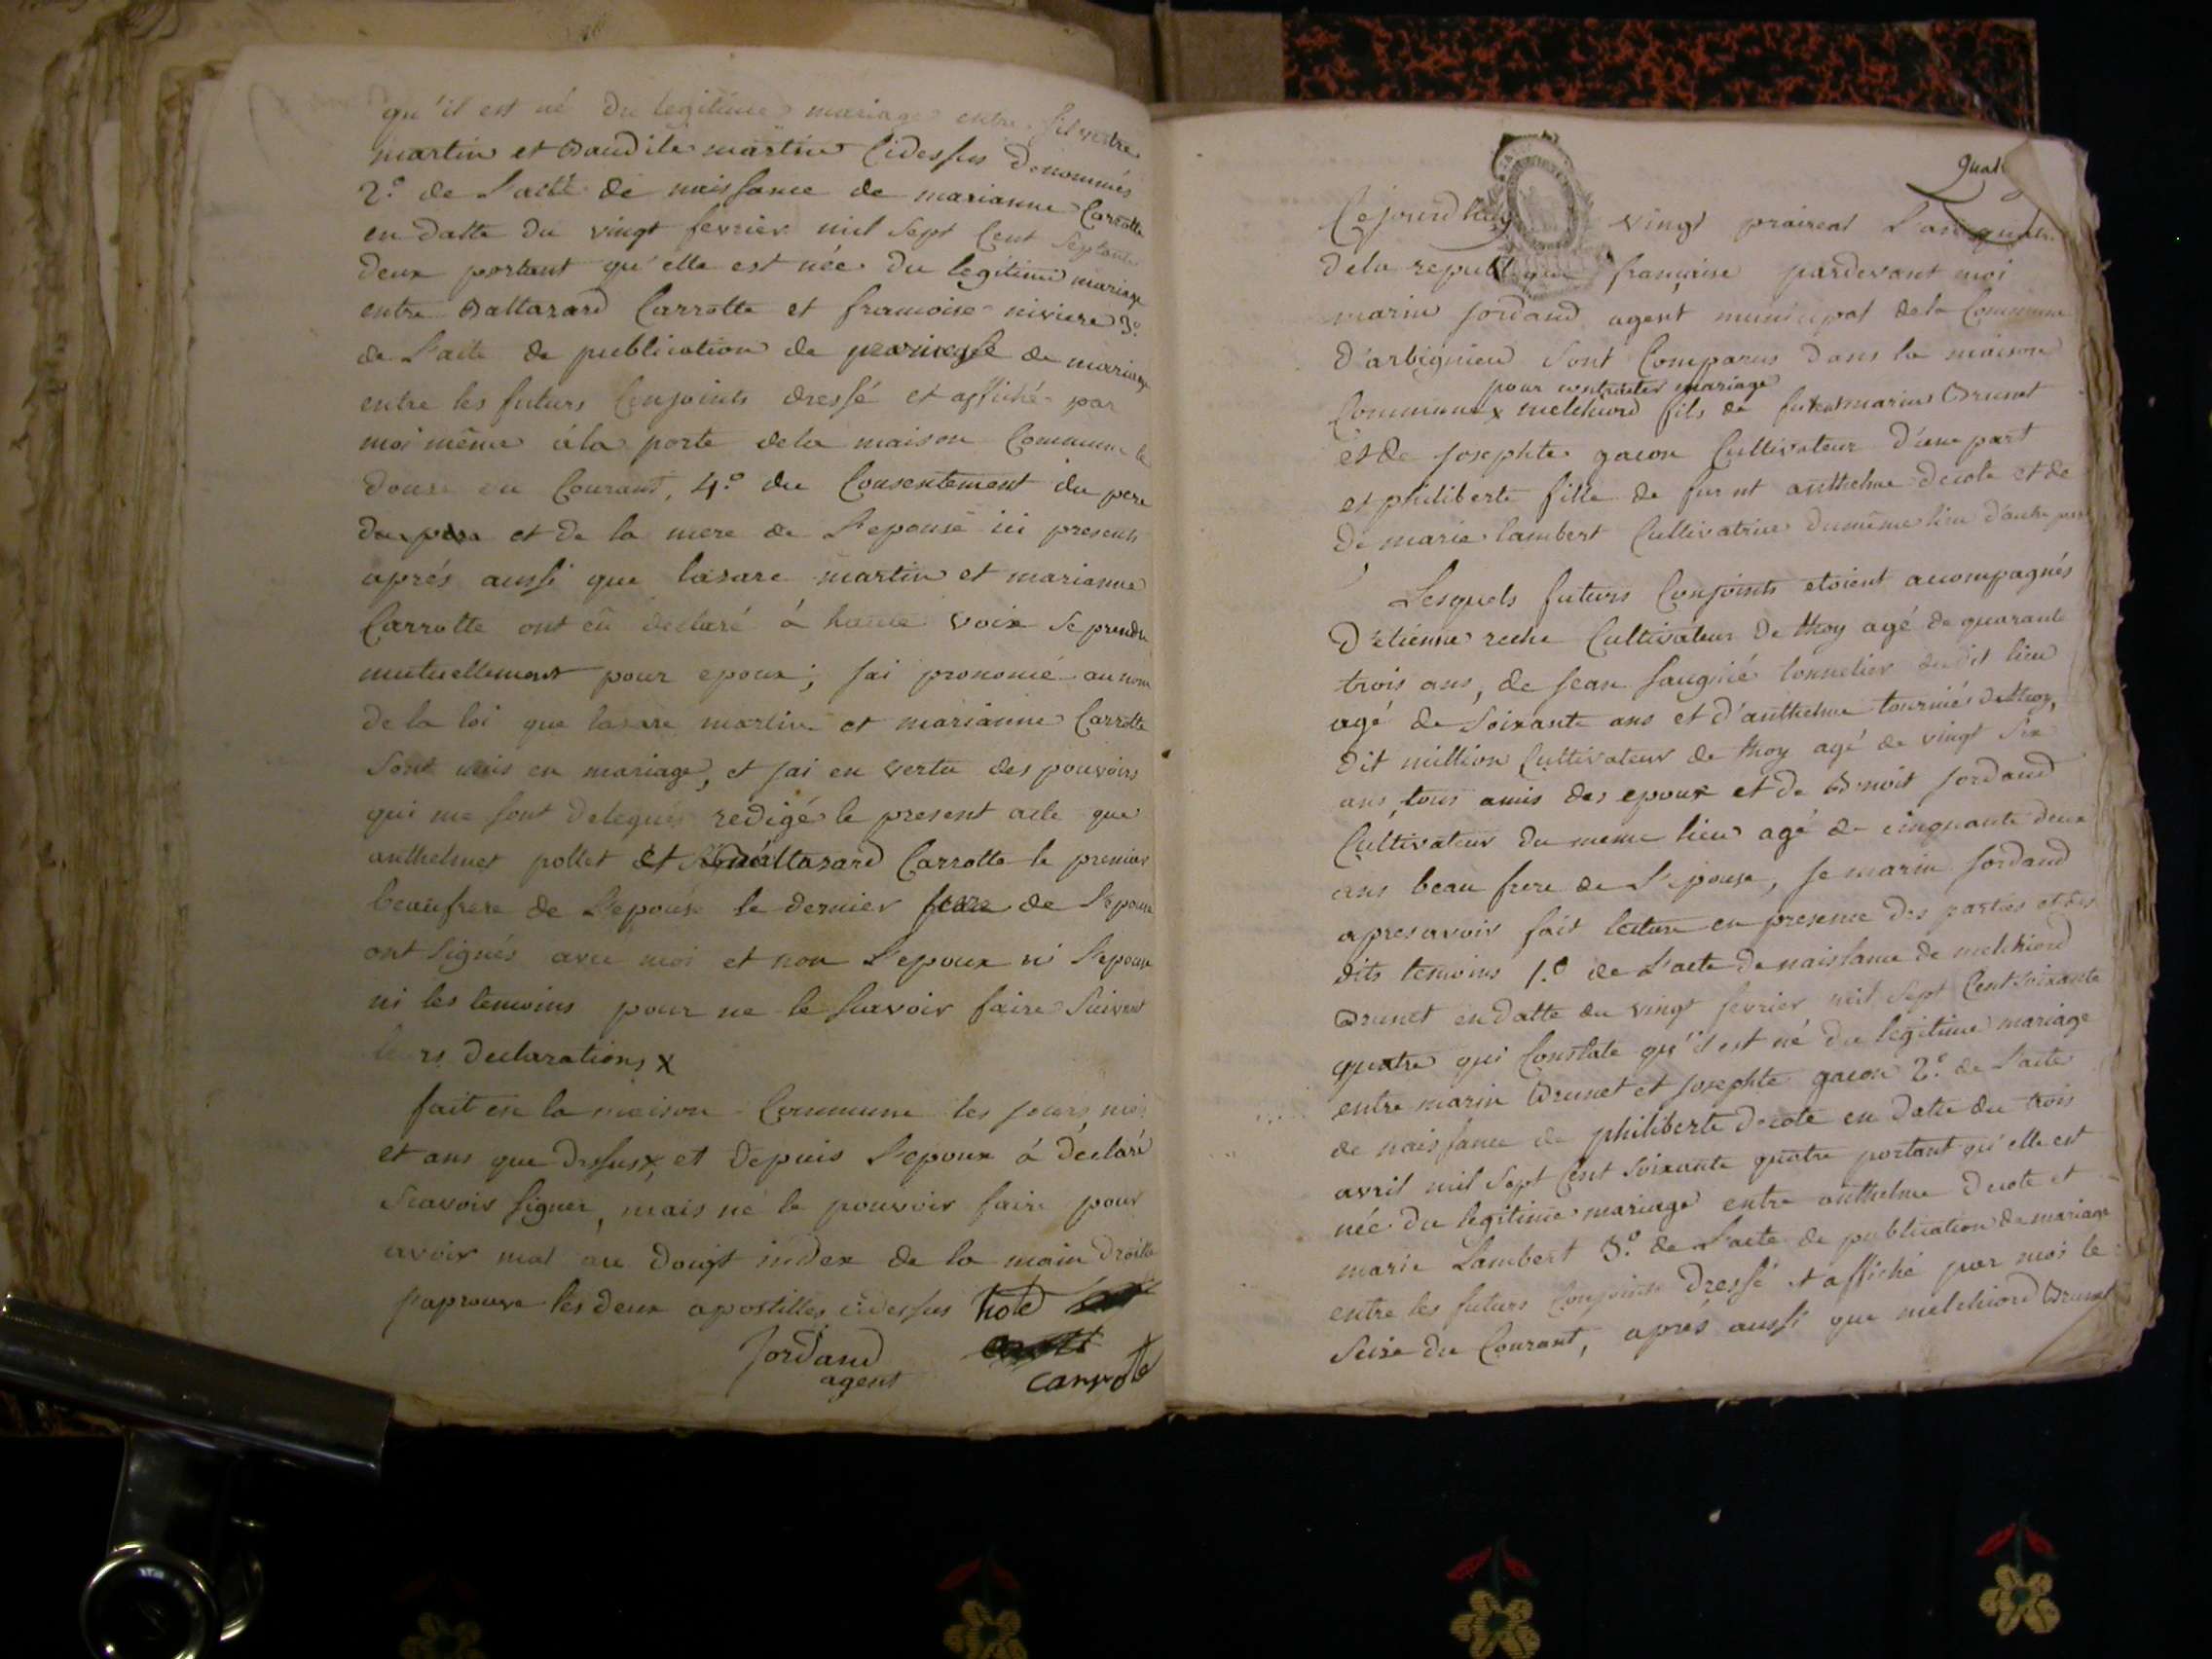 qu'il est né du legitime mariage entre silvestre
martin et Baudile martin cidessus denommés
2.° de l'acte de naissance de marianne Carrotte
en datte du vingt fevrier mil sept cent septante
deux portant qu'elle est née du legitime mariage
entre Baltazard Carrotte et francoise niviere 3.°
de l'acte de publication de de mariage
entre les futurs conjoints dressé et affiché par
moi même à la porte de la maison commune le
douse du courant, 4.° du consentement du pere
et de la mere de l'epouse ici presents
aprés aussi que lasare martin et marianne
Carrotte ont eu declaré à haute voix se prendre
mutuellement pour epoux; jai prononcé au nom
de la loi que lasare martin et marianne Carrotte
sont unis en mariage, et jai en vertu des pouvoirs
qui me sont delegués redigé le present acte que
anthelmet pollet et Baltasard Carrotte le premier
beaufrere de l'epouse le dernier frere de l'epouse
ont signés avec moi et non l'epoux ni l'epouse
ni les temoins pour ne le scavoir faire suivant
leurs declarations x
fait en la maison commune les jours, mois
et ans que dessus x, et depuis l'epoux à déclaré
scavoir signer, mais ne le pouvoir faire pour
avoir mal au doigt index de la main droitte
japrouve les deux apostilles cidessus
Jordand
agent
carrote
quat
Cejourd'huy vingt prairéal l'an quatre
de la republique française pardevant moi
marin jordand agent municipal de la commune
d'arbignieu sont comparus dans la maison
pour contracter mariage
commune x melchiord fils de marin Brunet
et de josephte gacon cultivateur d'une part
et philiberte fille de anthelme decote et de
de marie lambert cultivatrice dumême lieu d'autre part
Lesquels futurs conjoints etoient accompagnés
d'etienne reche cultivateur de thoy agé de quarante
trois ans, de jean saugné tonnelier dudit lieu
agé de soixante ans et d'anthelme tournié de thoy,
dit million cultivateur de thoy agé de vingt six
ans, tous amis des epoux et de Benoit jordand
cultivateur du meme lieu agé de cinquante deux
ans beau frere de l'epouse, je marin jordand
apres avoir fait lecture en presence des parties et des
dits temoins 1.° de l'acte de naissance de melchiord
Brunet en datte du vingt fevrier mil sept cent soixante
quatre qui constate qu'il est né du legitime mariage
entre marin Brunet et josephte gacon 2.° de l'acte
de naissance de philiberte decote en date du trois
avril mil sept cent soixante quatre portant qu'elle est
née du legitime mariage entre anthelme decote et
marie Lambert 3.° de l'acte de publication de mariage
entre les futurs conjoints dressé et affiché par moi le
seize du courant, aprés aussi que melchiord Brunet